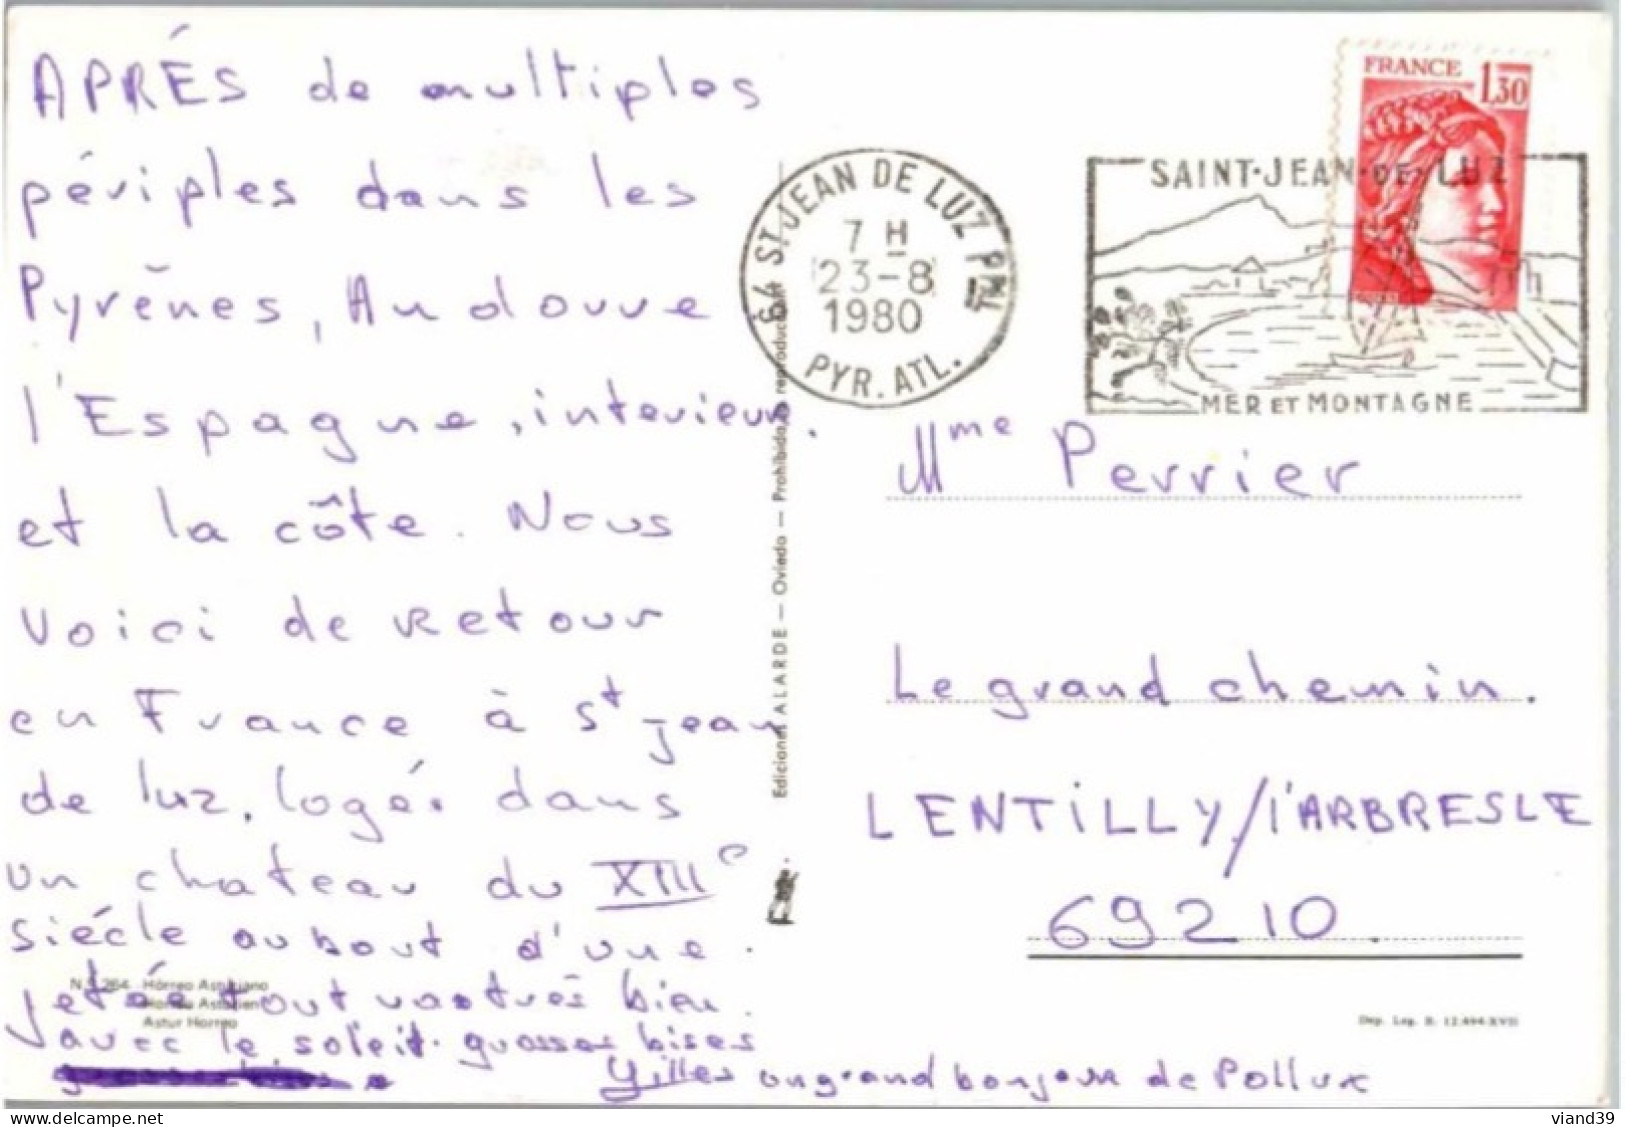 APRÉS de multiples
périples dans les
Pyrénes, Andorre
l'Espagne, interieur.
et la côte. Nous
voici de retour
en France à St jean
de luz, logés dans
un chateau du XIIIe
siécle au bout d'une
jetée tout va très bien.
avec le soleil. grosses bises
Gilles un grand bonjour de Pollux
N.º 264 Hórreo Asturiano
Astur Horreo
Ediciones ALARDE — Oviedo — Prohibida la reproducción
64 ST JEAN DE LUZ PPAL
7 H
23-8
1980
PYR. ATL.
SAINT-JEAN-DE-LUZ
MER ET MONTAGNE
FRANCE 1,30
Mme Perrier
Le grand chemin.
LENTiLLY/l'ARBRESLE
69210.
Dep. Leg. B. 12.494-XVII
viand39